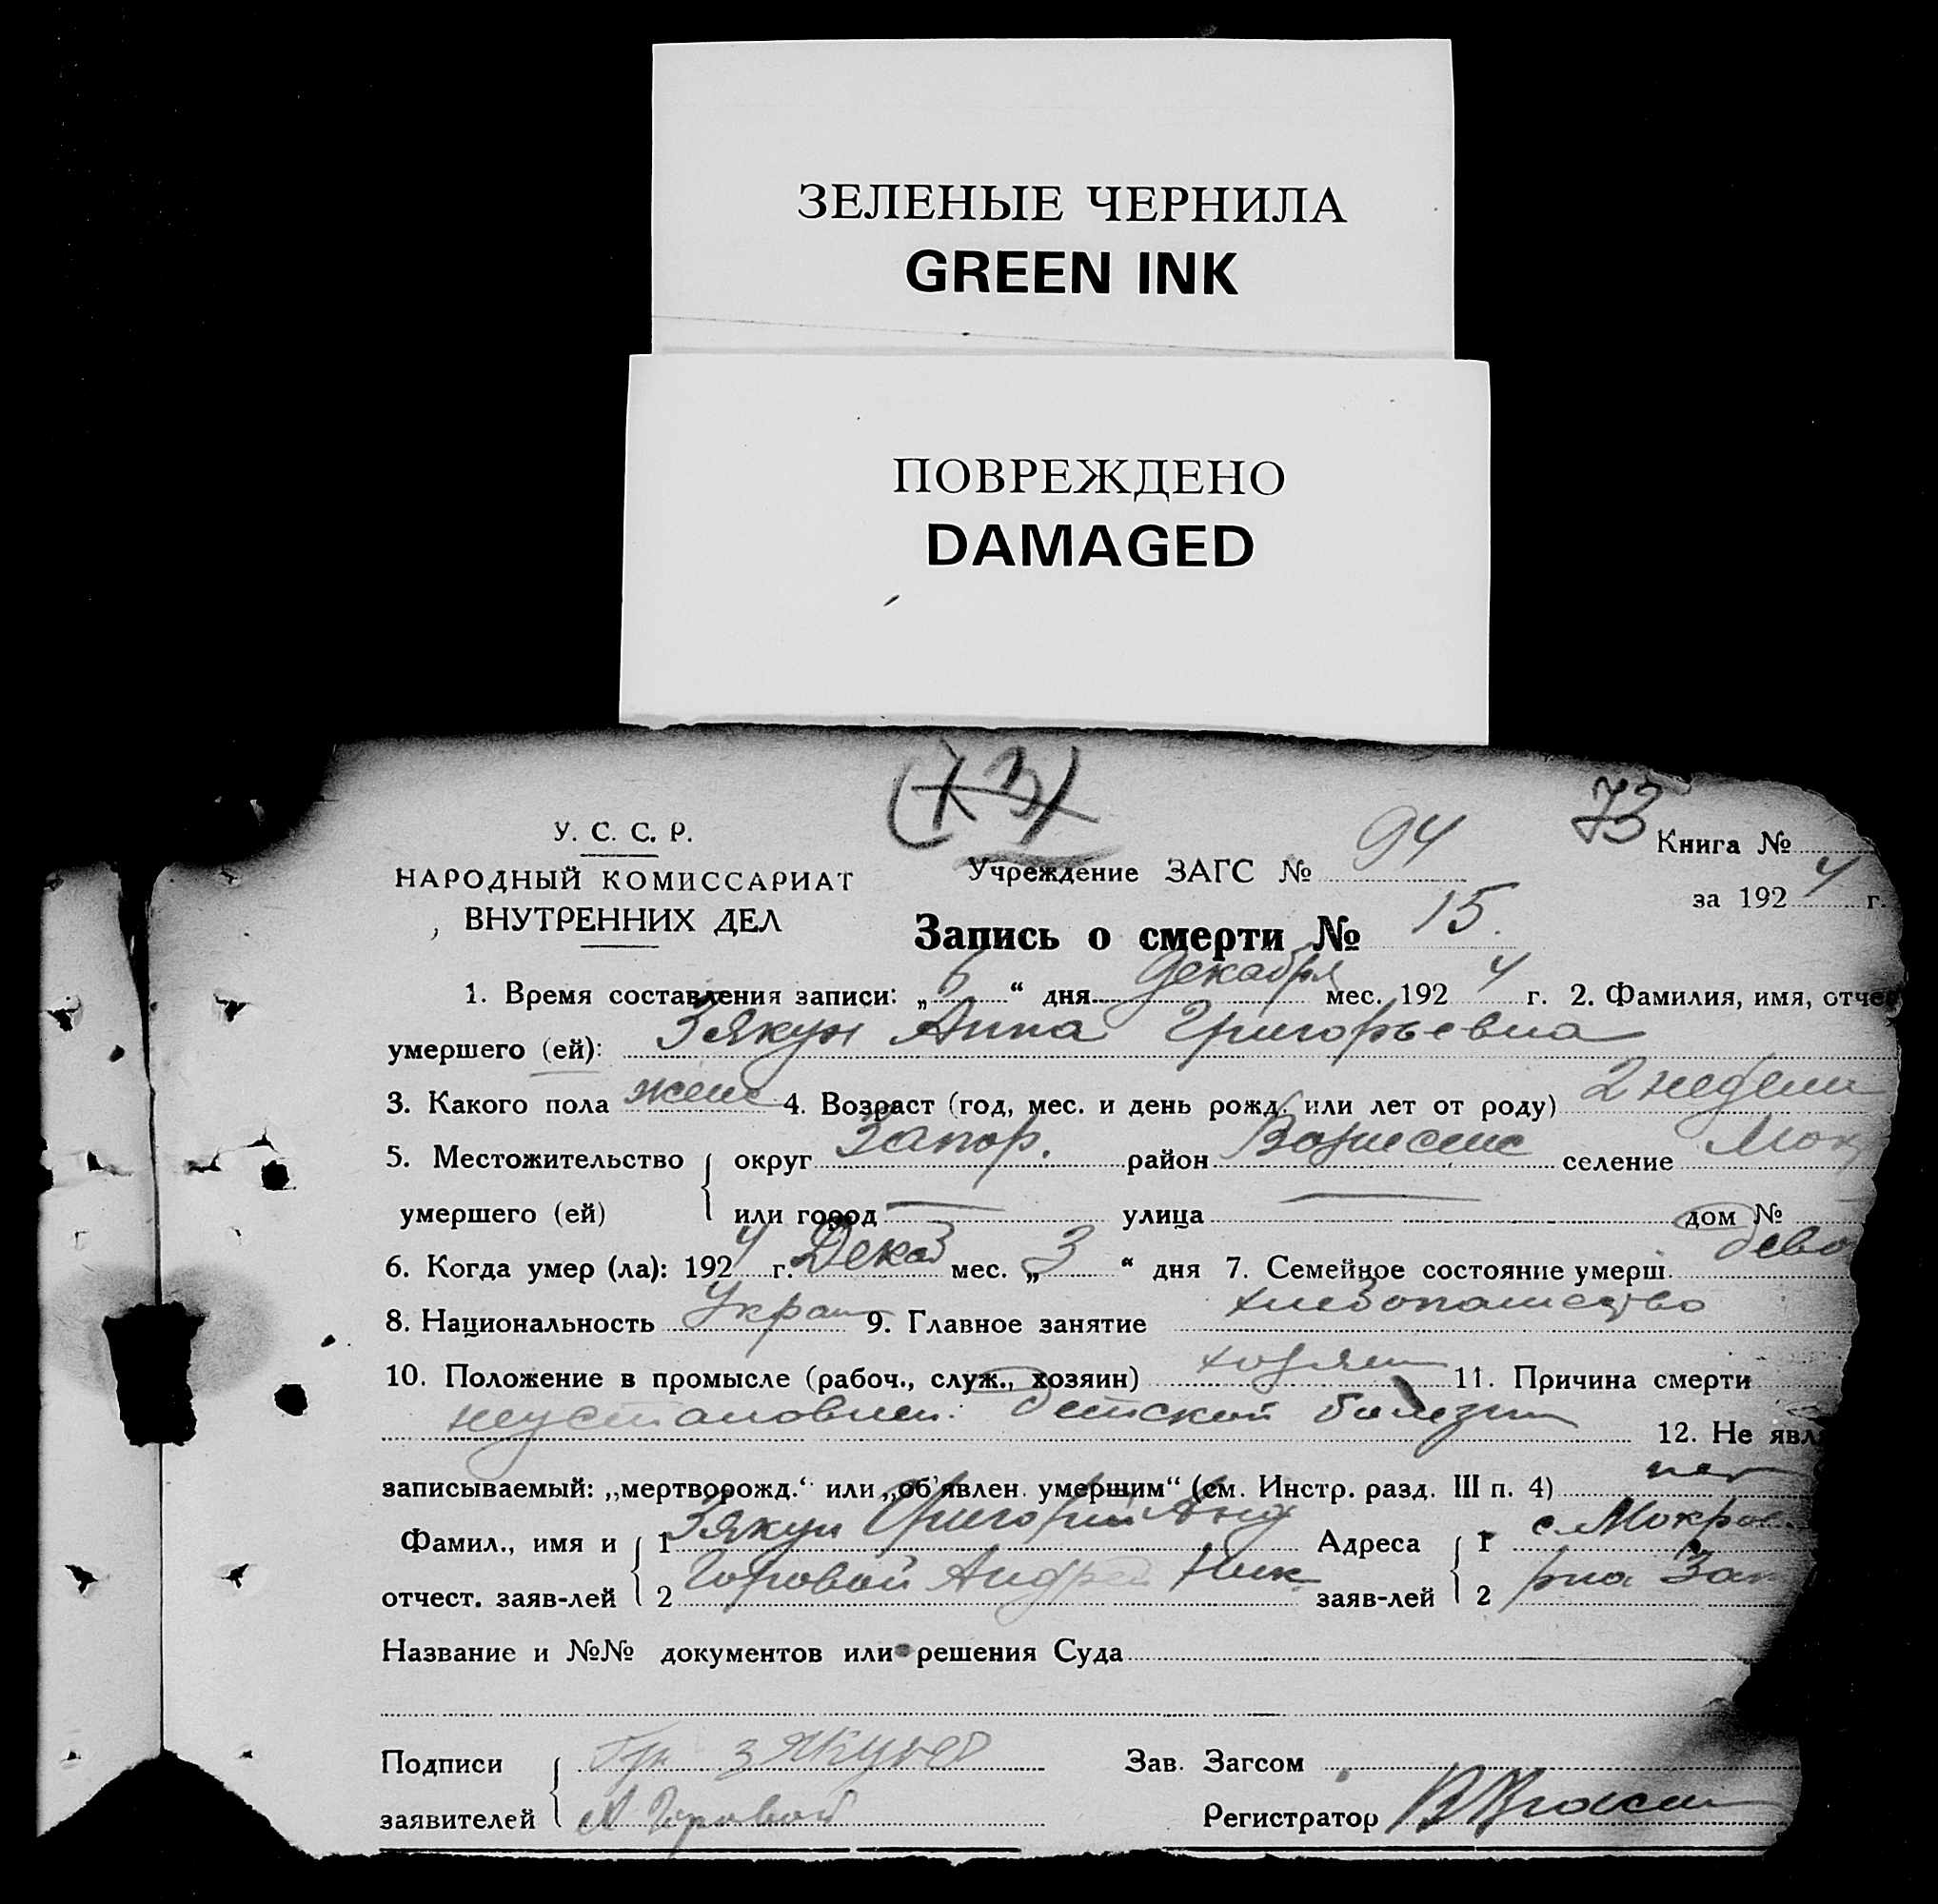 ЗЕЛЕНЫЕ ЧЕРНИЛА
GREEN INK
ПОВРЕЖДЕНО
DAMAGED
73
У. С. С. Р.
Книга №
НАРОДНЫЙ КОМИССАРИАТ
Учреждение ЗАГС № 94
за 1924 г.
ВНУТРЕННИХ ДЕЛ
Запись о смерти № 15.
1. Время составления записи: „6“ дня декабря мес. 1924 г. 2. Фамилия, имя, отче
умершего (ей): Зякун Анна Григорьевна
3. Какого пола женс 4. Возраст (год, мес. и день рожд. или лет от роду) 2 недели
5. Местожительство округ Запор. район Вознесенс селение Мок
умершего (ей) или город — улица — дом №
6. Когда умер (ла): 1924 г. Декаб мес. „3“ дня 7. Семейное состояние умерш. дево
8. Национальность Украин 9. Главное занятие хлебопашество
10. Положение в промысле (рабоч., служ., хозяин) хозяин 11. Причина смерти
неустановлен. детской болезни 12. Не явл
записываемый: „мертворожд.“ или „об'явлен умершим“ (см. Инстр. разд. III п. 4) нет
Фамил., имя и 1 Зякун Григорий Анд Адреса 1 с. Мокров
отчест. заяв-лей 2 Горовой Андрей Ник заяв-лей 2 рна Зап
Название и №№ документов или решения Суда
Подписи Гр Зякунов Зав. Загсом
заявителей А Горовой Регистратор